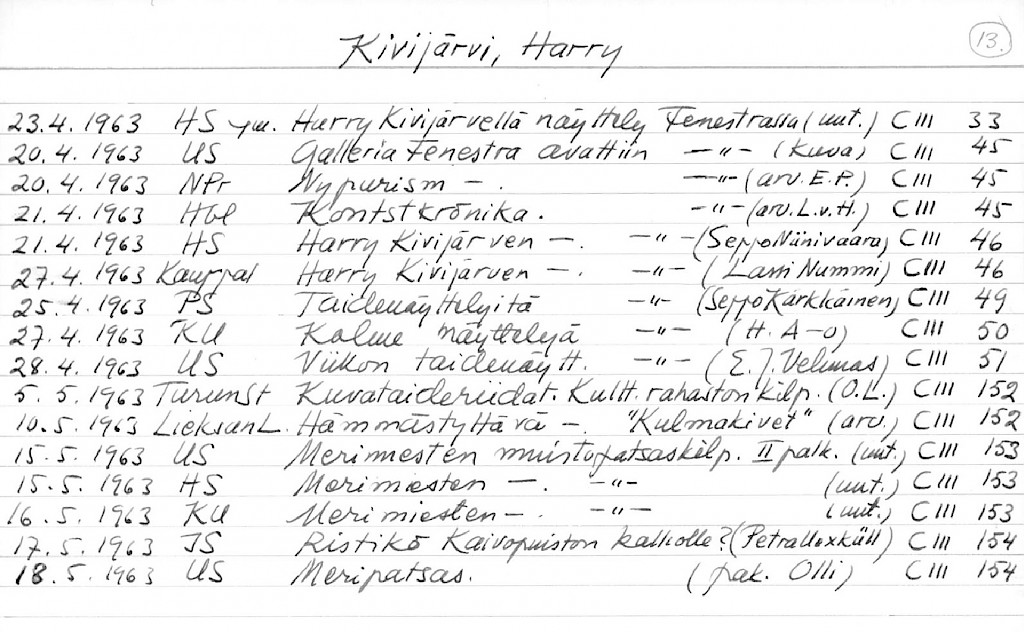 Kivijärvi, Harry 13.
23.4.1963 HS ym. Harry Kivijärvellä näyttely Fenestrassa (uut.) C III 33
20.4.1963 US Galleria Fenestra avattiin —"— (kuva) C III 45
20.4.1963 NPr Nypurism —. —"— (arv. E.P.) C III 45
21.4.1963 Hbl Kontstkrönika. —"— (arv. L.v.H.) C III 45
21.4.1963 HS Harry Kivijärven —. —"— (Seppo Niinivaara) C III 46
27.4.1963 Kauppal Harry Kivijärven —. —"— (Lassi Nummi) C III 46
25.4.1963 PS Taidenäyttelyitä —"— (Seppo Kärkkäinen) C III 49
27.4.1963 KU Kolme näyttelyä —"— (H. A-o) C III 50
28.4.1963 US Viikon taidenäytt. —"— (E.J. Vehmas) C III 51
5.5.1963 TurunSt Kuvataideriidat. Kultt.rahaston kilp. (O.L.) C III 152
10.5.1963 Lieksan L. Hämmästyttävä —. "Kulmakivet" (arv.) C III 152
15.5.1963 US Merimiesten muistopatsaskilp. II palk. (uut.) C III 153
15.5.1963 HS Merimiesten —. —"— (uut.) C III 153
16.5.1963 KU Merimiesten —. —"— (uut.) C III 153
17.5.1963 IS Ristikö Kaivopuiston kalliolle? (Petra Uexküll) C III 154
18.5.1963 US Meripatsas. (pak. Olli) C III 154